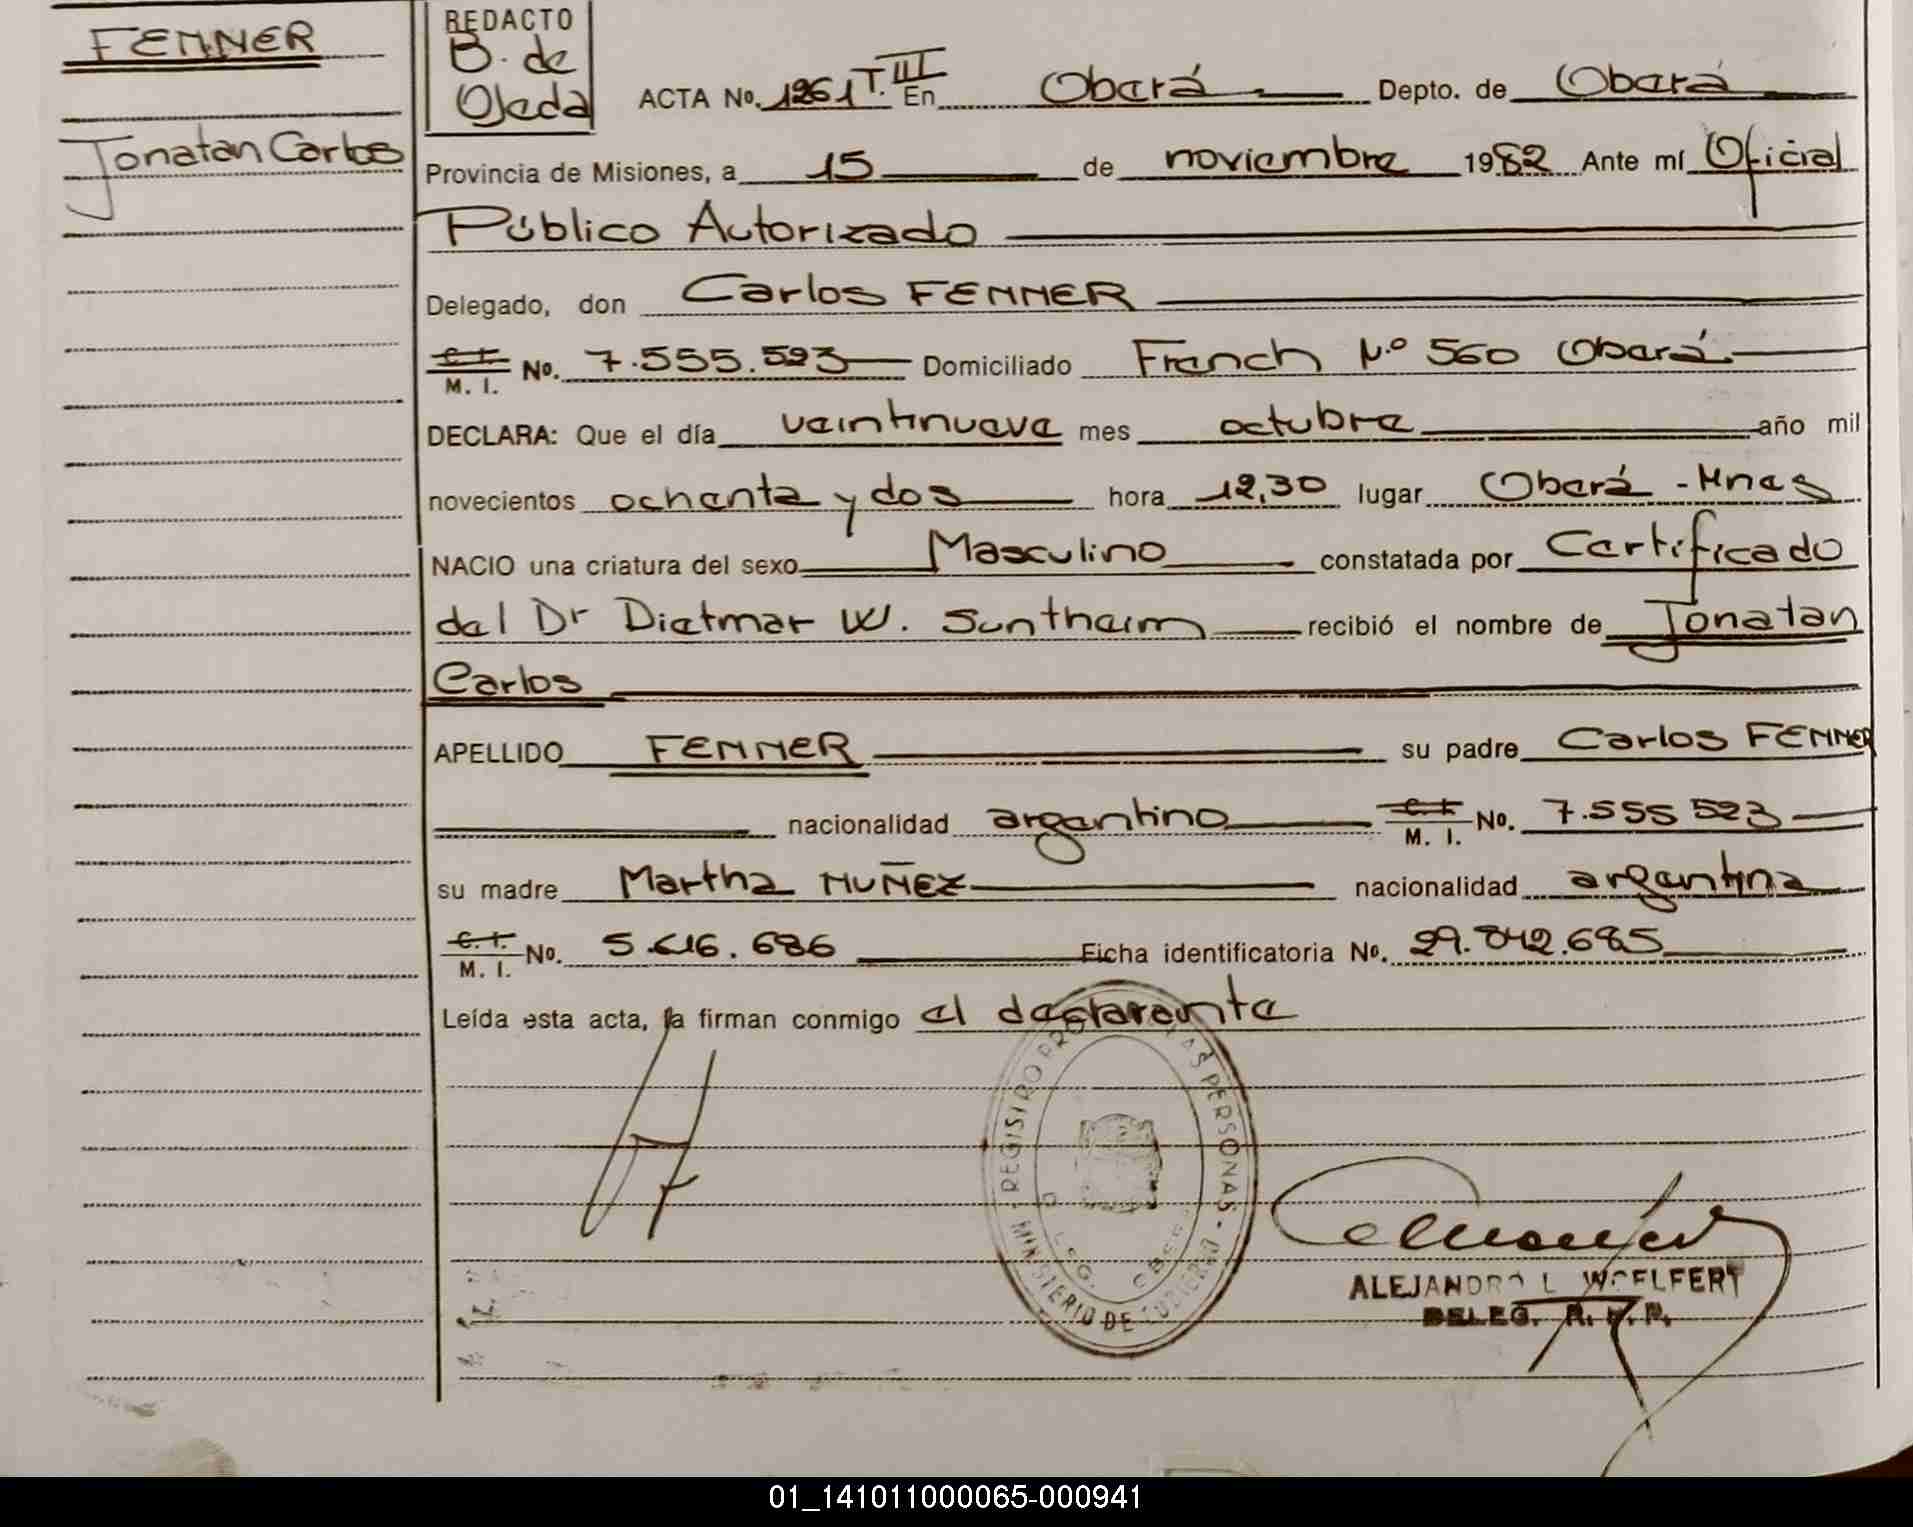 FENNER
Jonatan Carlos
REDACTO
B. de
Ojeda
ACTA No. 1261 T. III En Oberá Depto. de Oberá
Provincia de Misiones, a 15 de noviembre 1982 Ante mí Oficial
Público Autorizado
Delegado, don Carlos FENNER
C. I. M. I. No. 7.555.523 Domiciliado French N.º 560 Oberá
DECLARA: Que el día veintinueve mes octubre año mil
novecientos ochenta y dos hora 12,30 lugar Oberá - Mnes
NACIO una criatura del sexo Masculino constatada por Certificado
del Dr Dietmar W. Suntheim recibió el nombre de Jonatan
Carlos
APELLIDO FENNER su padre Carlos FENNER
nacionalidad argentino C. I. M. I. No. 7.555 523
su madre Martha NUÑEZ nacionalidad argentina
C. I. M. I. No. 5.616.686 Ficha identificatoria No. 29.842.685
Leída esta acta, la firman conmigo el declarante
REGISTRO PRO LAS PERSONAS - MINISTERIO DE GOBIERNO
DELEG. OBERA
ALEJANDRO L. WOELFERT
DELEG. R. P. P.
01_141011000065-000941